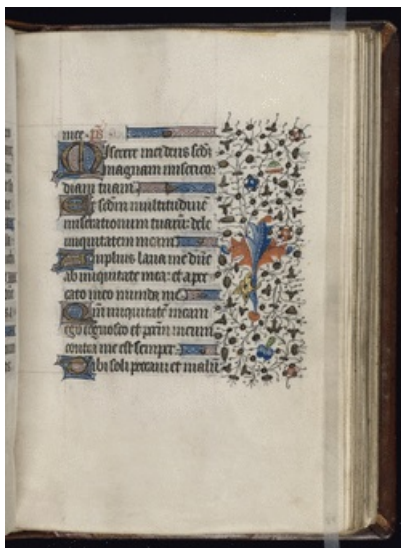 mee. ps
Miserere mei deus scd̄z
magnam misericor
diam tuam
Et scd̄m multitudinē
miserationum tuarū: dele
iniquitatem meam
Amplius laua me
ab iniquitate mea: et a pec
cato meo munda me
Qm̄ iniquitatē meam
ego cognosco et pctm̄ meum
contra me est semper
Tibi soli peccaui et malū